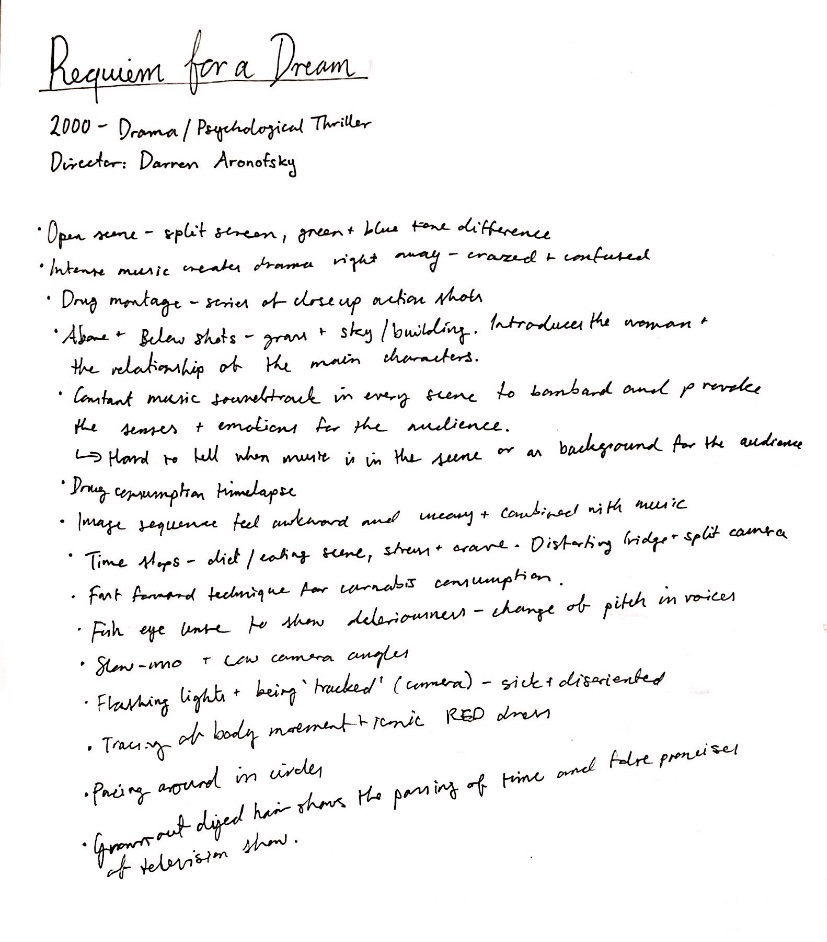 Requiem for a Dream
2000 - Drama / Psychological Thriller
Director: Darren Aronofsky
· Open scene - split screen, green + blue tone difference
· Intense music creates drama right away - crazed + confused
· Drug montage - series of close up action shots
· Above + Below shots - grass + sky / building. Introduces the woman +
the relationship of the main characters.
· Constant music soundtrack in every scene to bombard and provoke
the senses + emotions for the audience.
↳ Hard to tell when music is in the scene or as background for the audience
· Drug consumption timelapse
· Image sequence feel awkward and uneasy + combined with music
· Time stops - diet / eating scene, stress + crave. Distorting fridge + split camera
· Fast forward technique for cannabis consumption.
· Fish eye lense to show deleriousness - change of pitch in voices
· Slow-mo + Low camera angles
· Flashing lights + being 'tracked' (camera) - sick + disoriented
· Tracing of body movement + iconic RED dress
· Pacing around in circles
· Grown out dyed hair shows the passing of time and false promises
of television show.